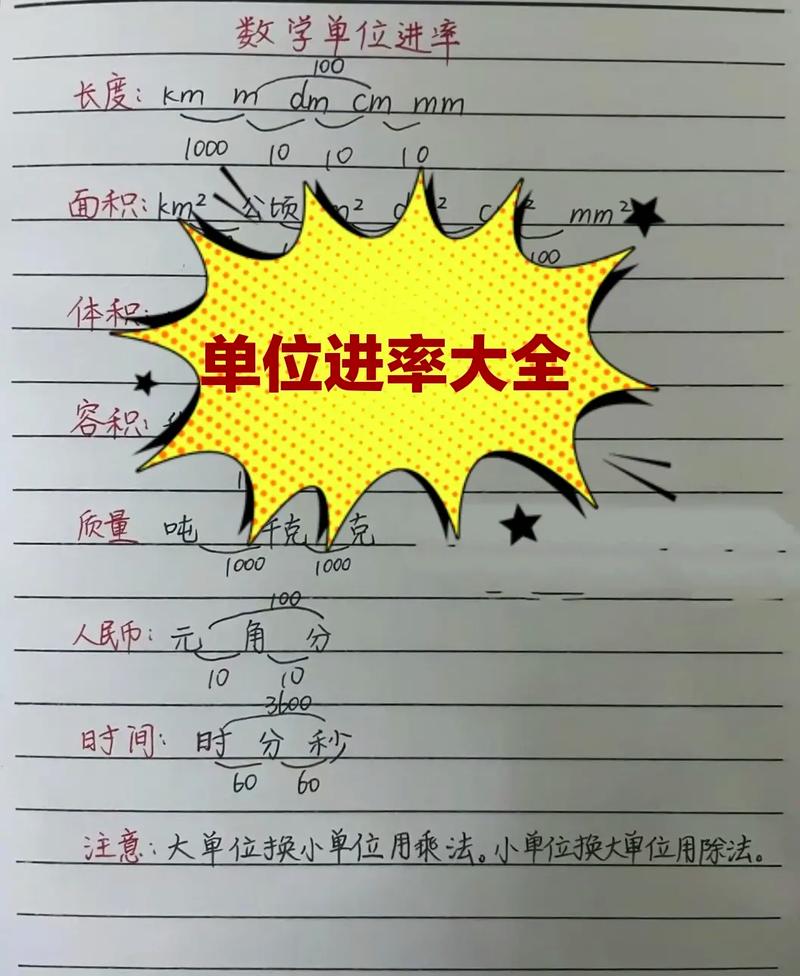 数学单位进率
100
长度: km m dm cm mm
1000 10 10 10
面积: km² 公顷 mm²
100
单位进率大全
体积:
容积:
质量 吨 千克 克
1000 1000
100
人民币: 元 角 分
10 10
3600
时间: 时 分 秒
60 60
注意: 大单位换小单位用乘法。小单位换大单位用除法。